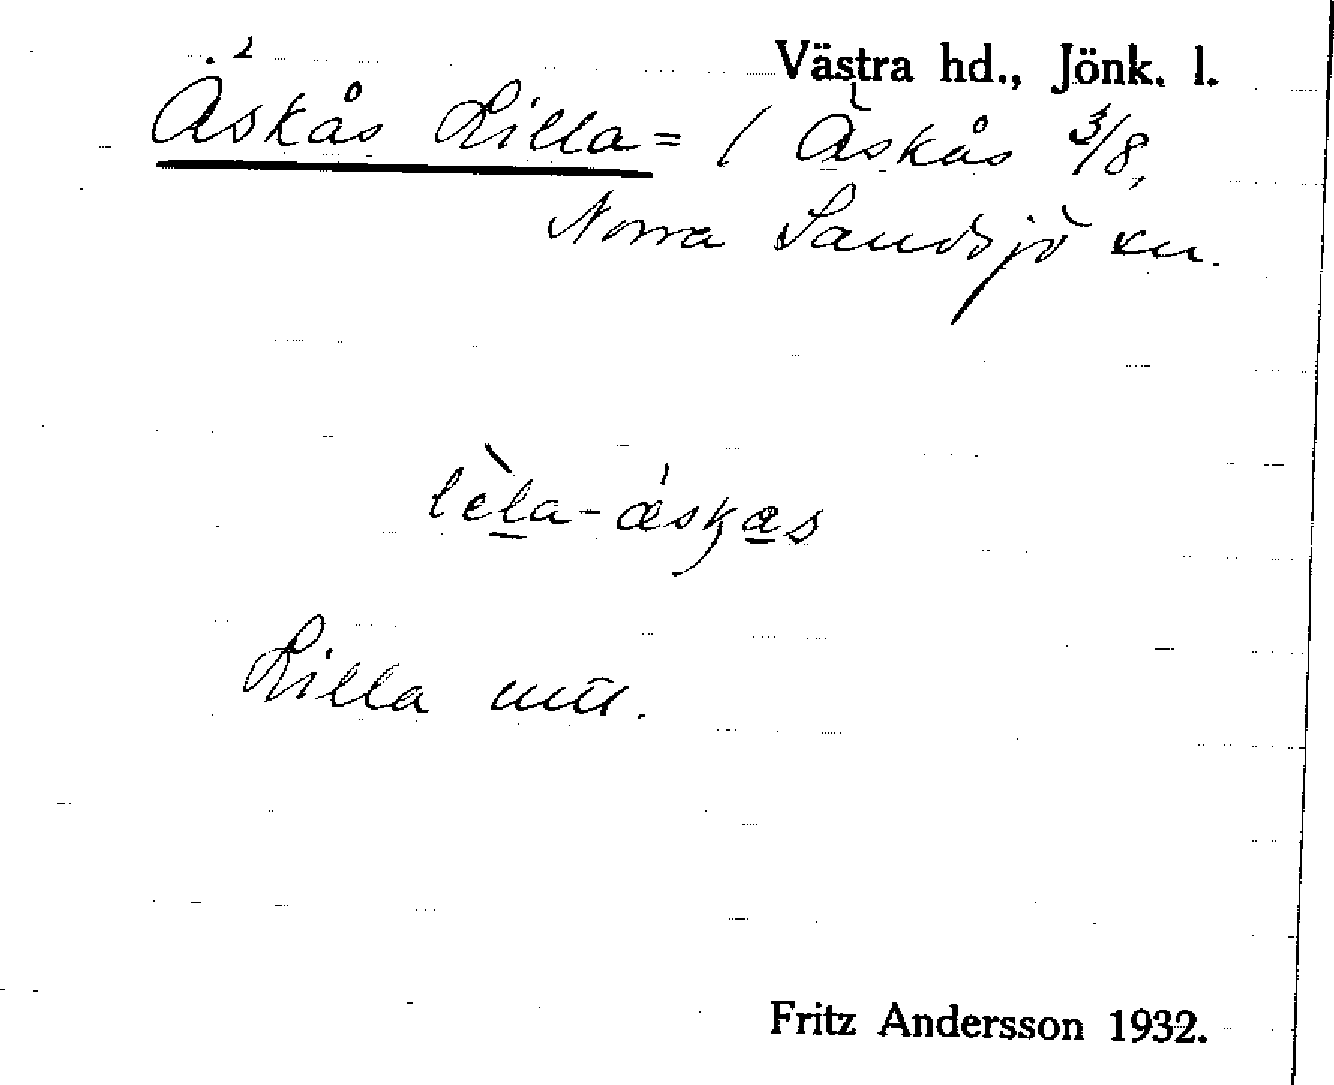 Västra hd., Jönk. l.
Äskås Lilla = / Äskås 3/8,
Norra Sandsjö sn.
lèla-áskas
Lilla
Fritz Andersson 1932.